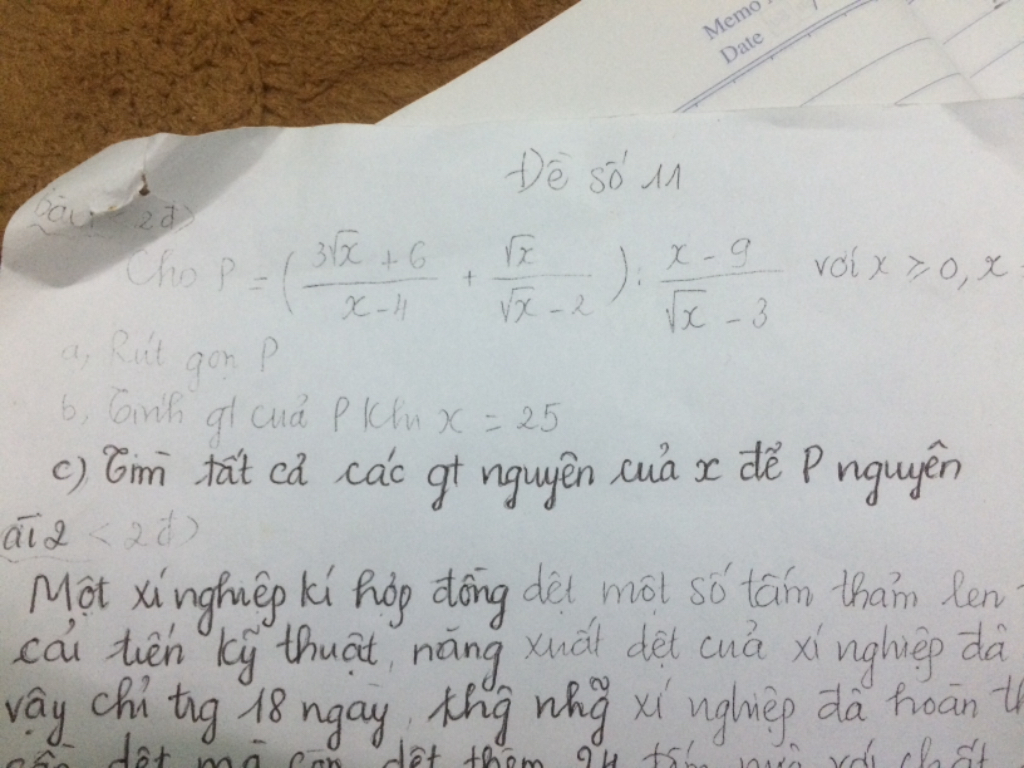 Memo
Date
Đề số 11
Bài 1 < 2đ)
Cho P = ( (3√x + 6)/(x - 4) + √x/(√x - 2) ) : (x - 9)/(√x - 3) với x ≥ 0, x
a, Rút gọn P
b, Tính gt cuả P khi x = 25
c) Tìm tất cả các gt nguyên cuả x để P nguyên
ài 2 < 2đ)
Một xí nghiệp kí hợp đồng dệt một số tấm thảm len
cải tiến kỹ thuật, năng xuất dệt cuả xí nghiệp đã
vậy chỉ trg 18 ngày, thg nhg xí nghiệp đã hoàn th
cần dệt mà còn dệt thêm 24 tấm nữa với chất